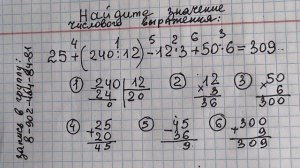 Найдите значение
числового выражения:
4 1 5 2 6 3
25+(240:12)-12·3+50·6=309..
① 240 | 12
24 | 20
0
② ×12
3
36
③ ×50
6
300
④ +25
20
45
⑤ -45
36
9
⑥ +300
9
309
запись в группу: